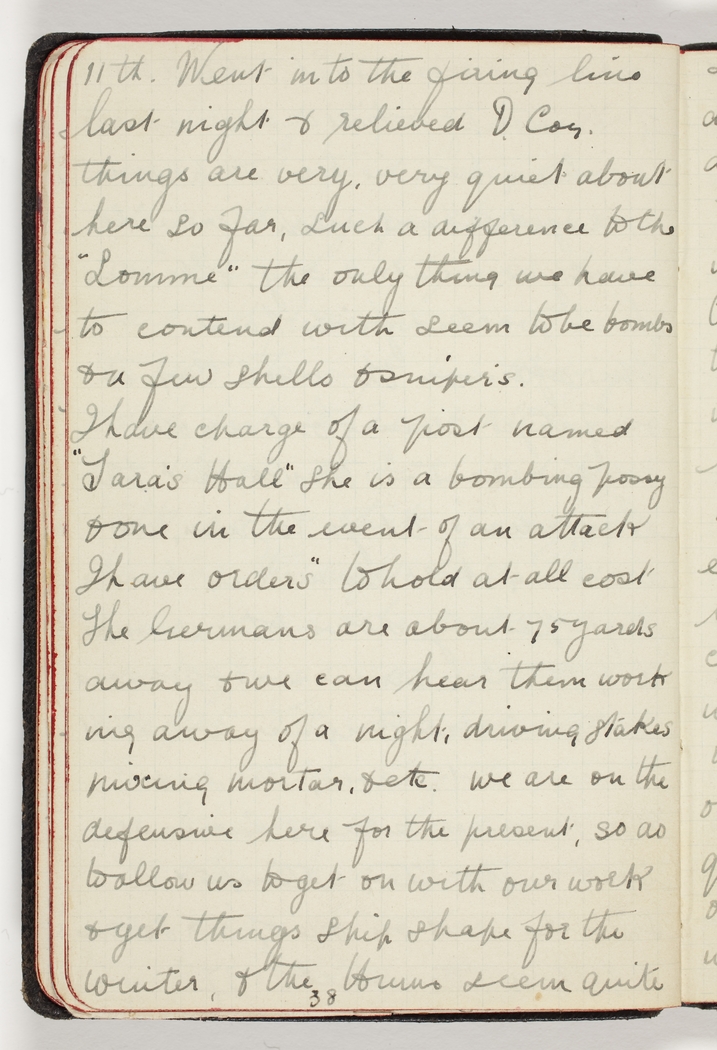 11th. Went into the firing line
last night & relieved D Coy.
things are very, very quiet about
here so far, such a difference to the
"Somme" the only thing we have
to contend with seem to be bombs
& a few shells & snipers.
I have charge of a post named
"Tara's Hall" She is a bombing possy
& one in the event of an attack
I have orders" to hold at all cost
The Germans are about 75 yards
away & we can hear them work
ing away of a night, driving stakes
mixing mortar, & etc. we are on the
defensive here for the present, so as
to allow us to get on with our work
& get things ship shape for the
winter, & the Huns seem quite
38